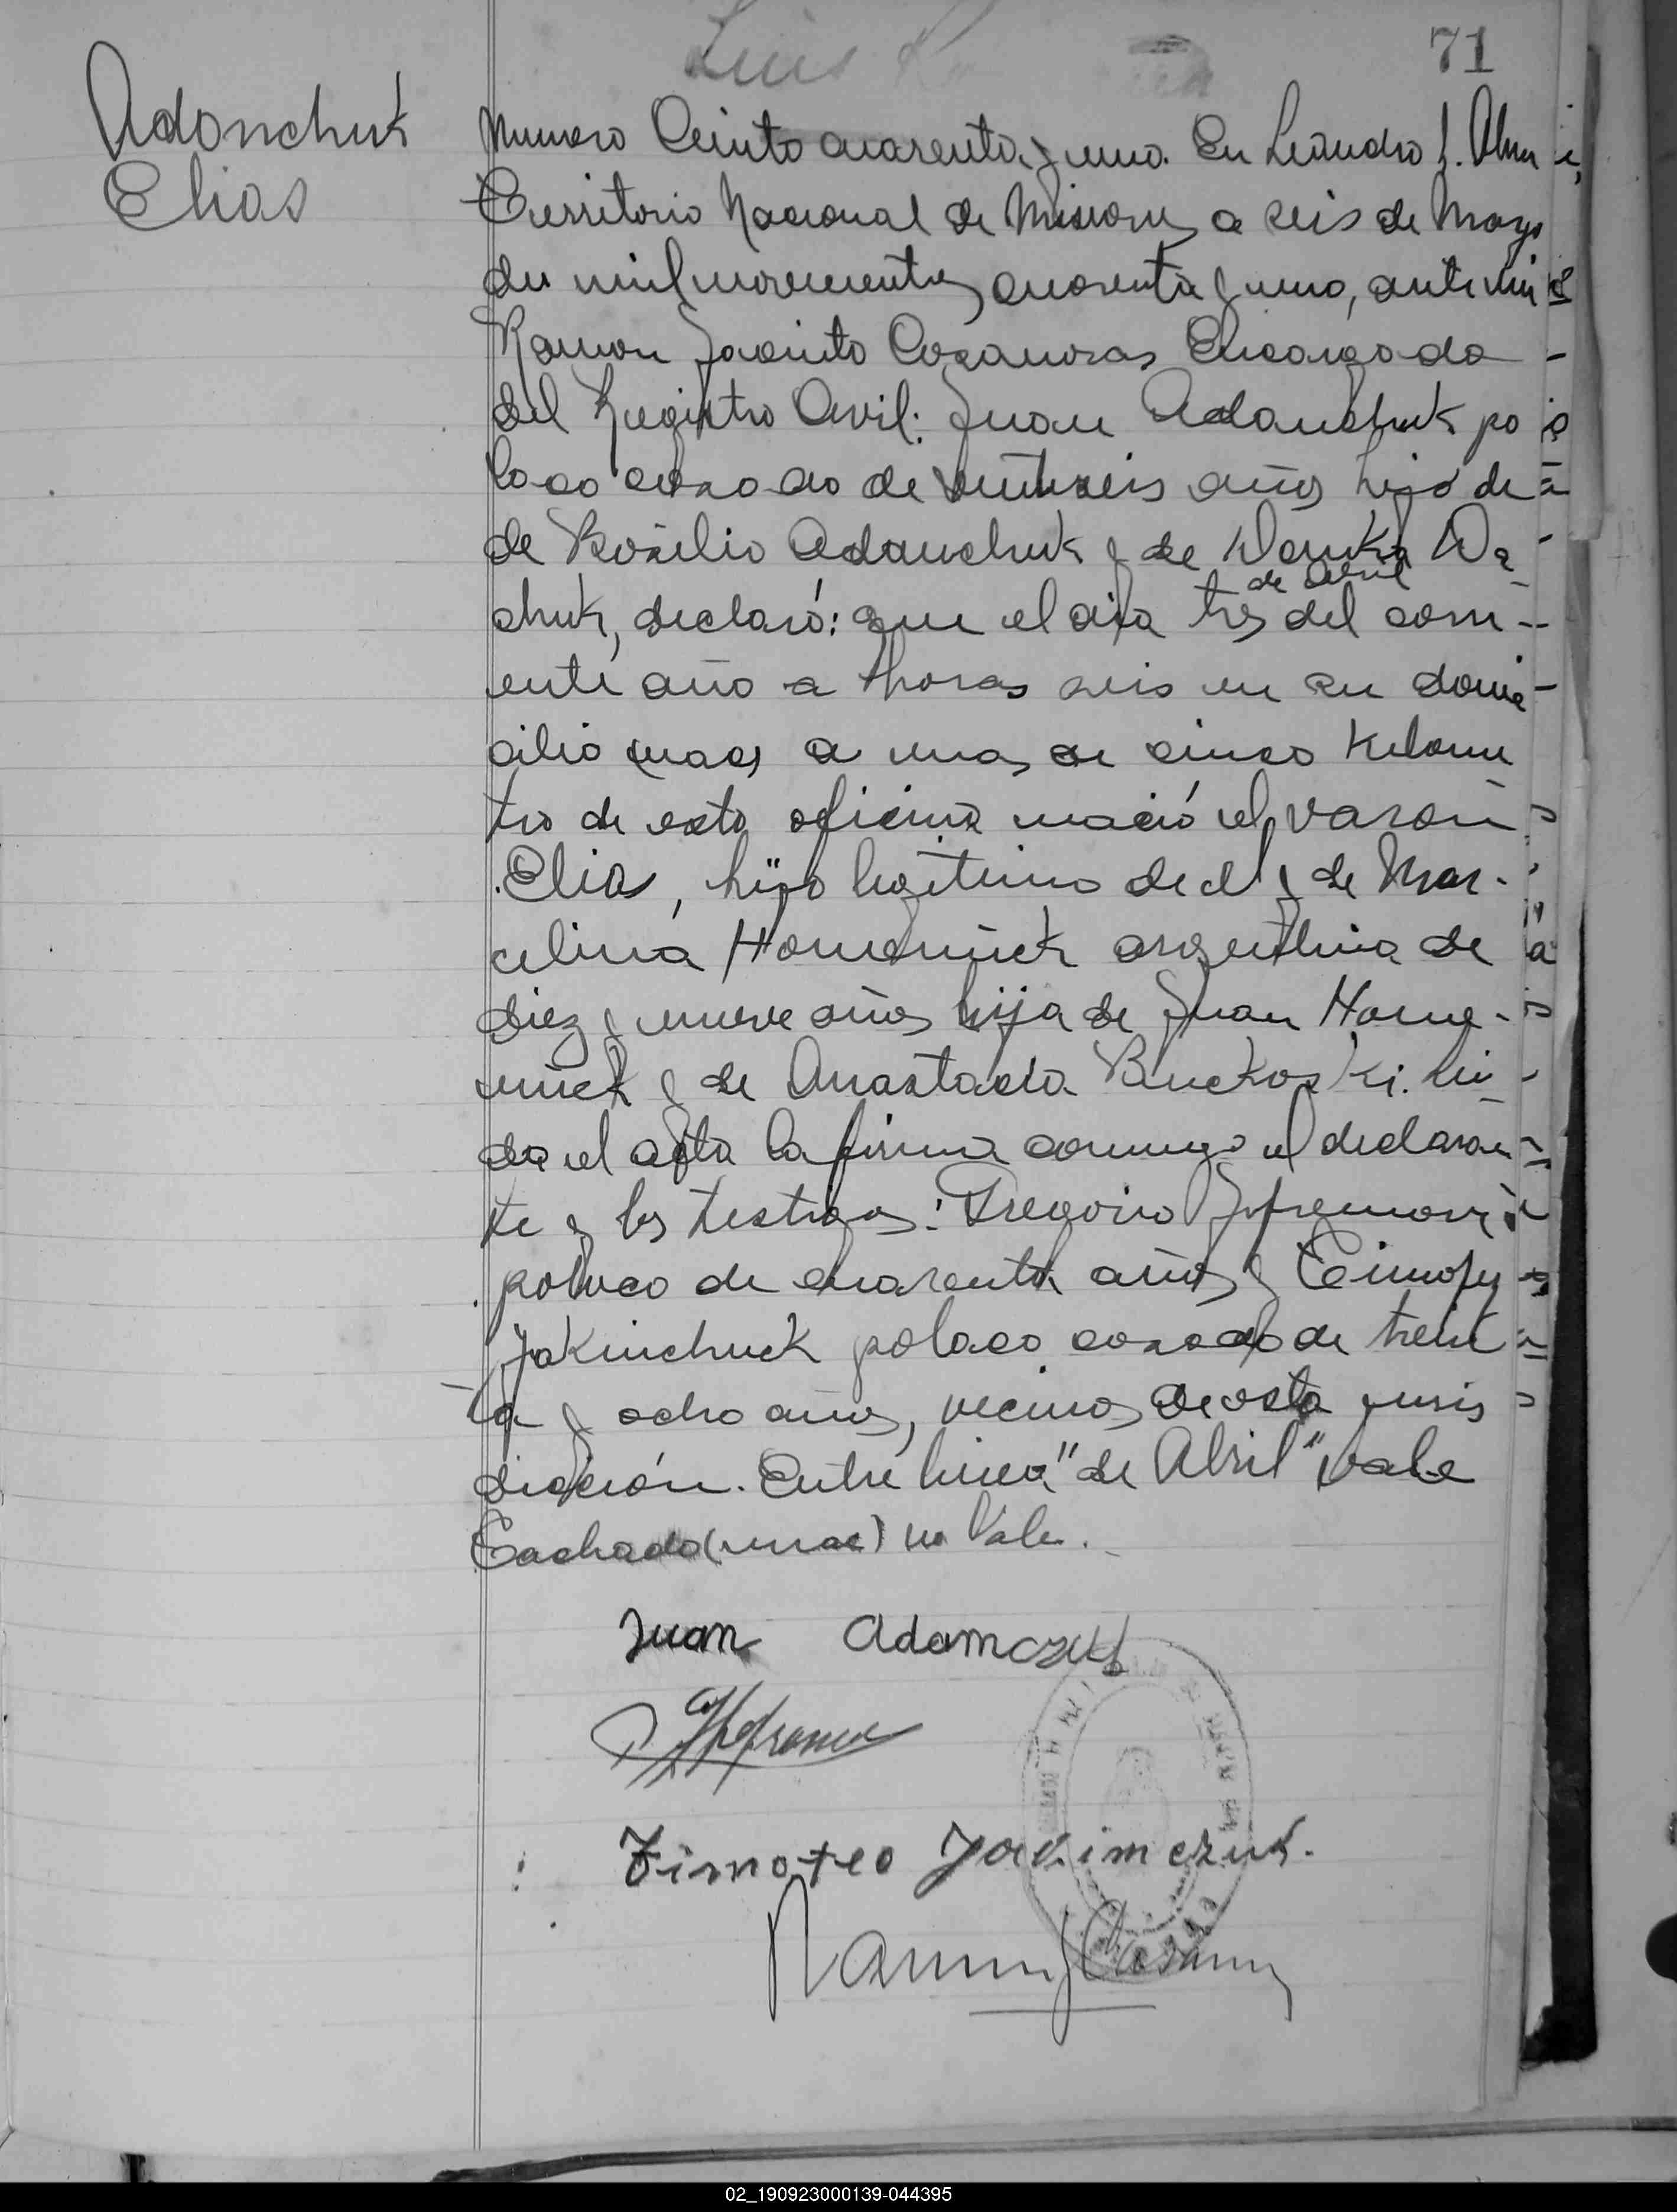 71
Adonchuk
Elias
Numero Ciento cuarenta y uno. En Leandro L. Alem
Territorio Nacional de Misiones a seis de Mayo
de mil novecientos cuarenta y uno, ante mi
Ramon Jacinto Encargado
del Registro Civil: Juan Adanchuk po
laco casado de veintiseis años hijo de
de Basilio Adanchuk y de
chuk, declaró: que el dia tres de Abril del corri-
ente año a horas seis en su domi-
cilio a mas de cinco Kilome
tro de esta oficina nació el varon
Elia, hijo legitimo de el y de Mar-
celina Homeniuck argentina de
diez y nueve años hija de Juan Home-
niuck y de Anastacia Buckoski. Lei-
da el acta la firma conmigo el declaran
te y los testigos: Gregorio
polaco de cuarenta años y Timofey
Jakinchuck polaco casado de trein
ta y ocho años, vecinos de esta juris
dicción. Entre linea "de Abril" vale
Tachado no Vale.
Juan Adamczuk
Timoteo Jakimczuk.
Ramon J
02_190923000139-044395